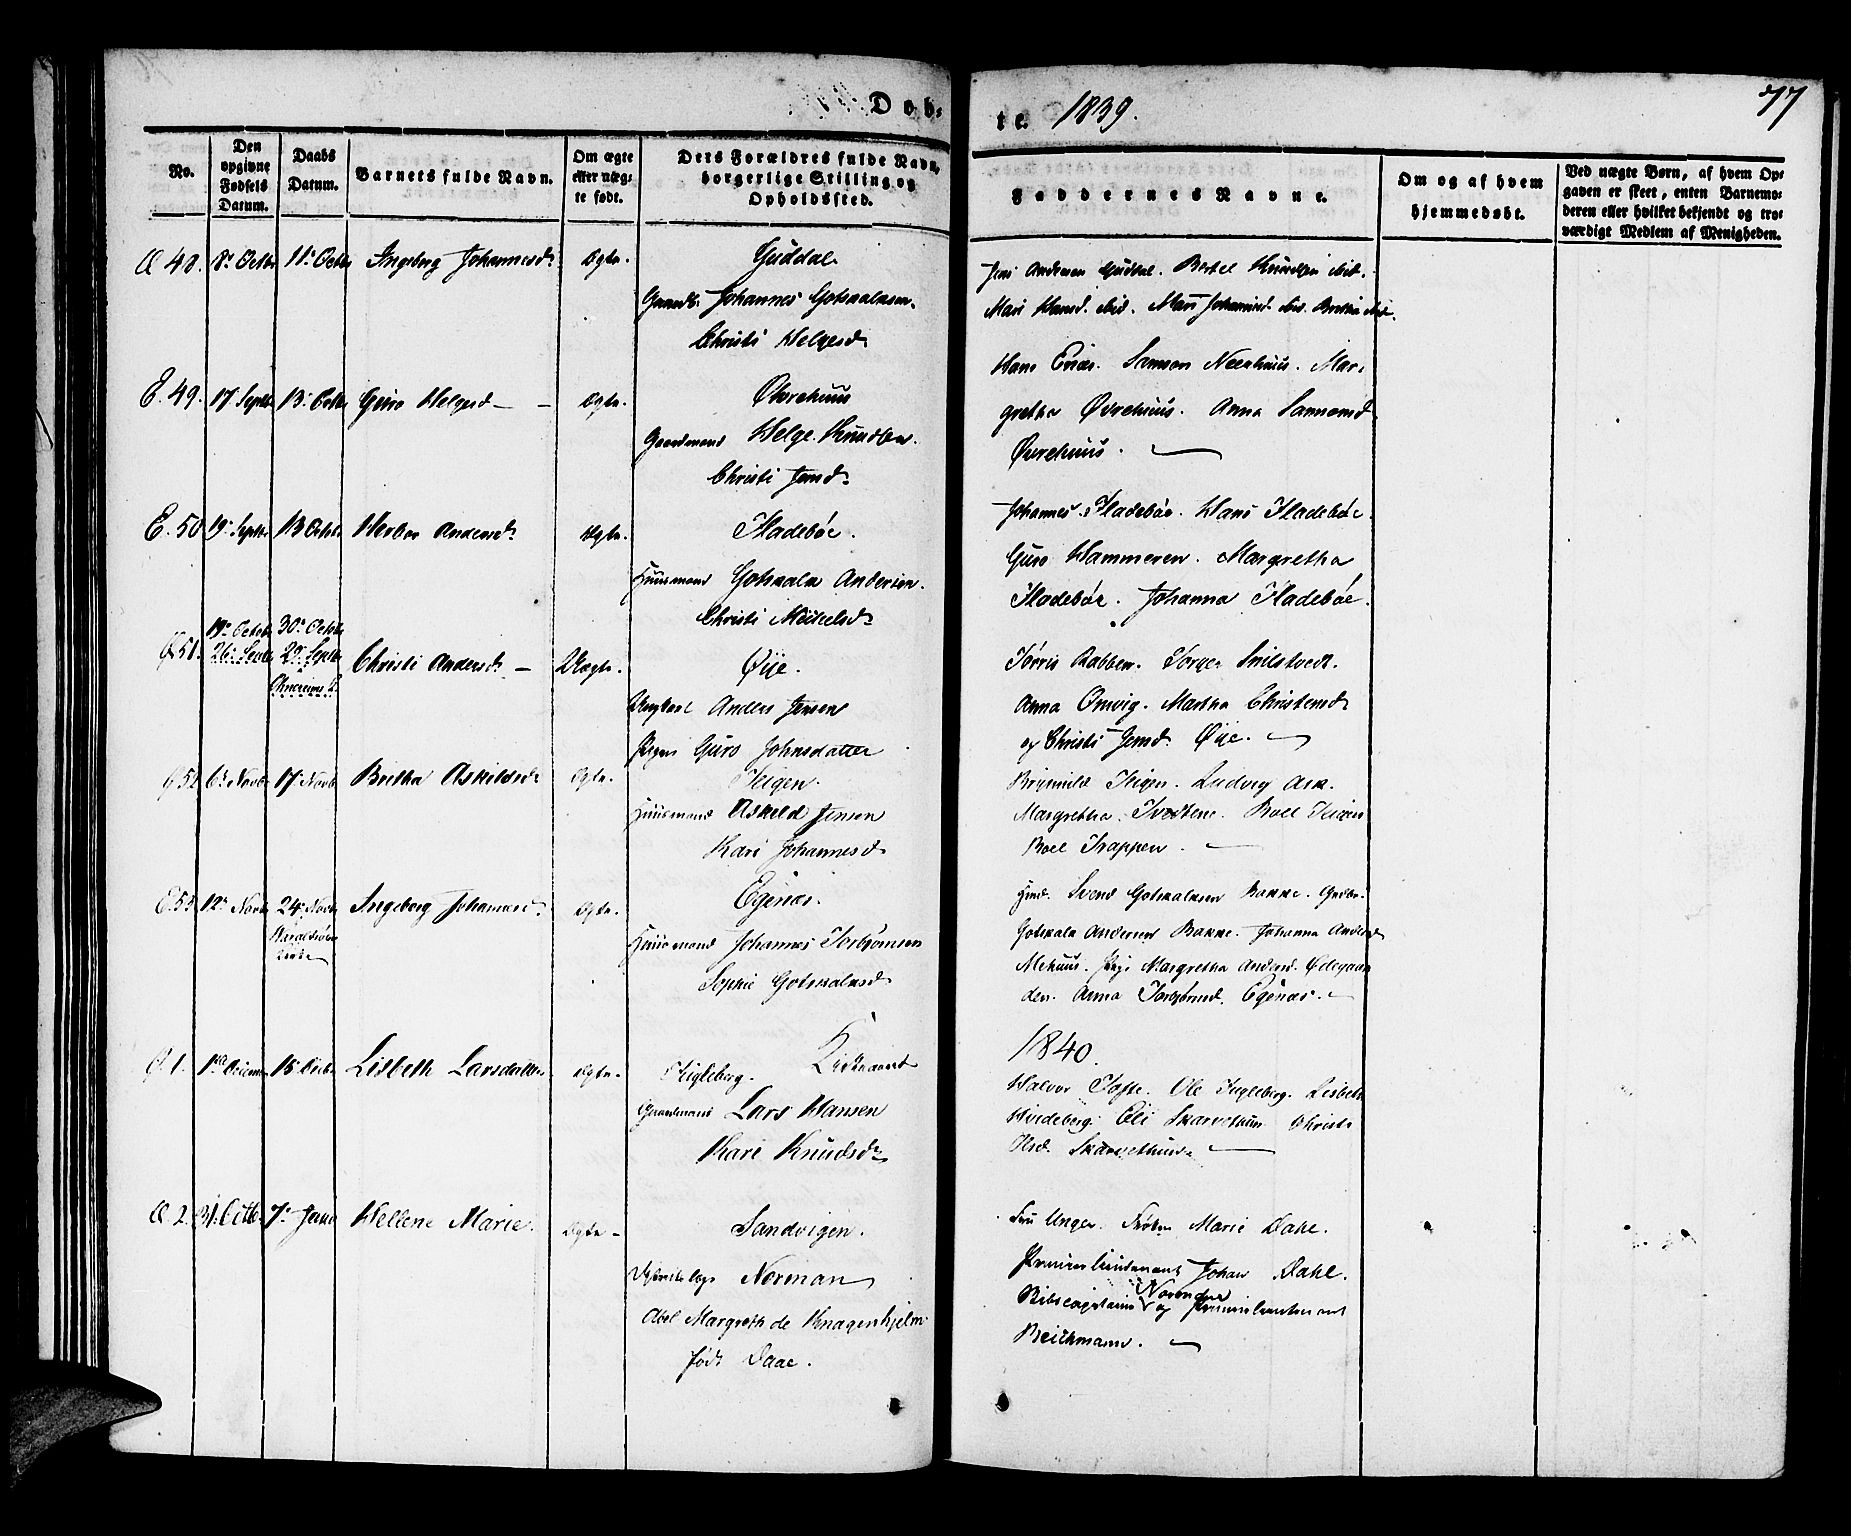 Døb-
te. 1839.
77
No.
Den opgivne Fødsels Datum.
Daabs Datum.
Barnets fulde Navn.
Om ægte eller uæg-
te født.
Dets Forældres fulde Navn,
borgerlige Stilling og
Opholdssted.
Faddernes Navne.
Om og af hvem
hjemmedøbt.
Ved uægte Børn, af hvem Op-
gaven er skeet, enten Barnemo-
deren eller hvilket bekjendt og tro-
værdigt Medlem af Menigheden.
48. 8. Octbr 11. Octbr Ingeborg Johannesd. Ægte.
Guddal
Gaardb. Johannes Gotskalksen.
Christi Helgesd.
Jens Andersen Guddal. Bertel Knudsen ibid.
Mari Hansd. ibid. Mari Johannesd. ibid.
E. 49. 17 Septbr 13. Octbr Guro Helgesd Ægte.
Øvrehuus
Gaardmand Helge Knudsen.
Christi Jensd.
Hans Samson Neerhuus. Mar-
gretha Øvrehuus. Anna Samsonsd
Øvrehuus.
E. 50 19. Septbr 13 Octbr Andersd. Ægte.
Fladebøe.
Huusmand Gotskalk Andersen.
Christi Mikkelsd.
Johannes Fladebøe. Hans Fladebøe.
Guro Hammeren. Margretha
Fladebøe. Johanna Fladebøe.
19. Octobr 30. Octbr
51. 26. Septbr 29. Septbr Christi Andersd. Uægte.
Øije.
Ungkarl Anders Jensen
Pigen Guro Johnsdatter
Tørris Rabben. Torger
Anna Omvig. Martha Christensd
og Christi Jensd. Øije.
52 6. Novbr 17. Novbr Britha Askildsd. Ægte.
Teigen.
Huusmand Askild Jensen
Kari Johannesd.
Brynnild Teigen. Ludvig Ask.
Margretha Tvedtene. Boel Teigen
Boel Trappen.
E. 53 12. Novbr 24. Novbr Ingeborg Johannesd. Ægte.
Egenæs.
Huusmand Johannes Torbjørnsen
Sophie Gotskalksd.
Svend Gotskalksen Bakke.
Gotskalk Andersen Bakke. Johanna Andersd
Mehuus. Pige Margretha Andersd. Ødegaar-
den. Anna Torbjørnsd. Egenæs.
1840.
1. 15 Decbr Lisbeth Larsdatter Ægte
Fugleberg.
Gaardmand Lars Hansen
Kari Knudsd.
Halvor Tofte. Ole Fugleberg. Lisbeth
Hvideberg. Eli Skarvethun. Christi
Skarvethun.
2. 31. Octbr. 7. Janr Hellene Marie. Ægte
Sandvigen.
Norman
Abel Margrethe de Knagenhjelm
født Daae.
Fru Unger. Frøken Marie Dahl.
Premierlieutenant Johan Dahl.
og Premierlieutenant
Beichmann.